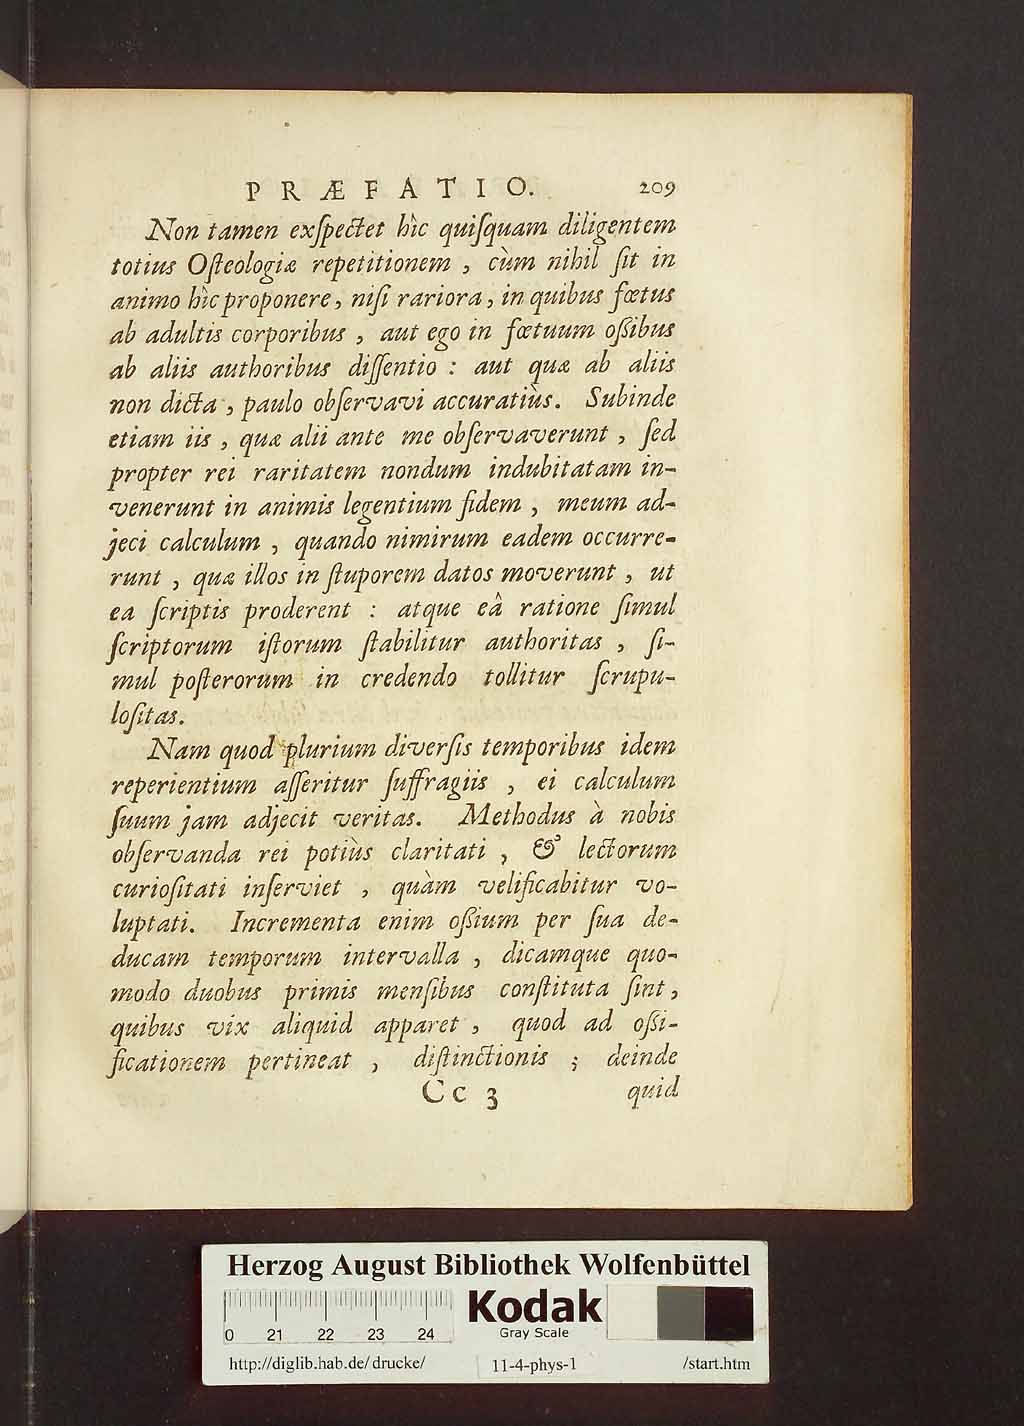 PRÆFATIO. 209
Non tamen exſpectet hìc quiſquam diligentem
totius Oſteologiæ repetitionem, cùm nihil ſit in
animo hìc proponere, niſi rariora, in quibus fœtus
ab adultis corporibus, aut ego in fœtuum oſſibus
ab aliis authoribus diſſentio: aut quæ ab aliis
non dicta, paulo obſervavi accuratiùs. Subinde
etiam iis, quæ alii ante me obſervaverunt, ſed
propter rei raritatem nondum indubitatam in-
venerunt in animis legentium fidem, meum ad-
jeci calculum, quando nimirum eadem occurre-
runt, quæ illos in ſtuporem datos moverunt, ut
ea ſcriptis proderent: atque eâ ratione ſimul
ſcriptorum iſtorum ſtabilitur authoritas, ſi-
mul poſterorum in credendo tollitur ſcrupu-
loſitas.
Nam quod plurium diverſis temporibus idem
reperientium aſſeritur ſuffragiis, ei calculum
ſuum jam adjecit veritas. Methodus à nobis
obſervanda rei potiùs claritati, & lectorum
curioſitati inſerviet, quàm velificabitur vo-
luptati. Incrementa enim oſſium per ſua de-
ducam temporum intervalla, dicamque quo-
modo duobus primis menſibus conſtituta ſint,
quibus vix aliquid apparet, quod ad oſſi-
ficationem pertineat, diſtinctionis; deinde
Cc 3 quid
Herzog August Bibliothek Wolfenbüttel
0 21 22 23 24
Kodak
Gray Scale
http://diglib.hab.de/drucke/ 11-4-phys-1 /start.htm